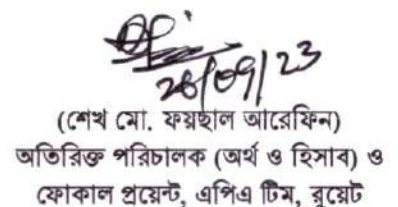 26/09/23
(শেখ মো. ফয়ছাল আরেফিন)
অতিরিক্ত পরিচালক (অর্থ ও হিসাব) ও
ফোকাল প্রয়েন্ট, এপিএ টিম, রুয়েট